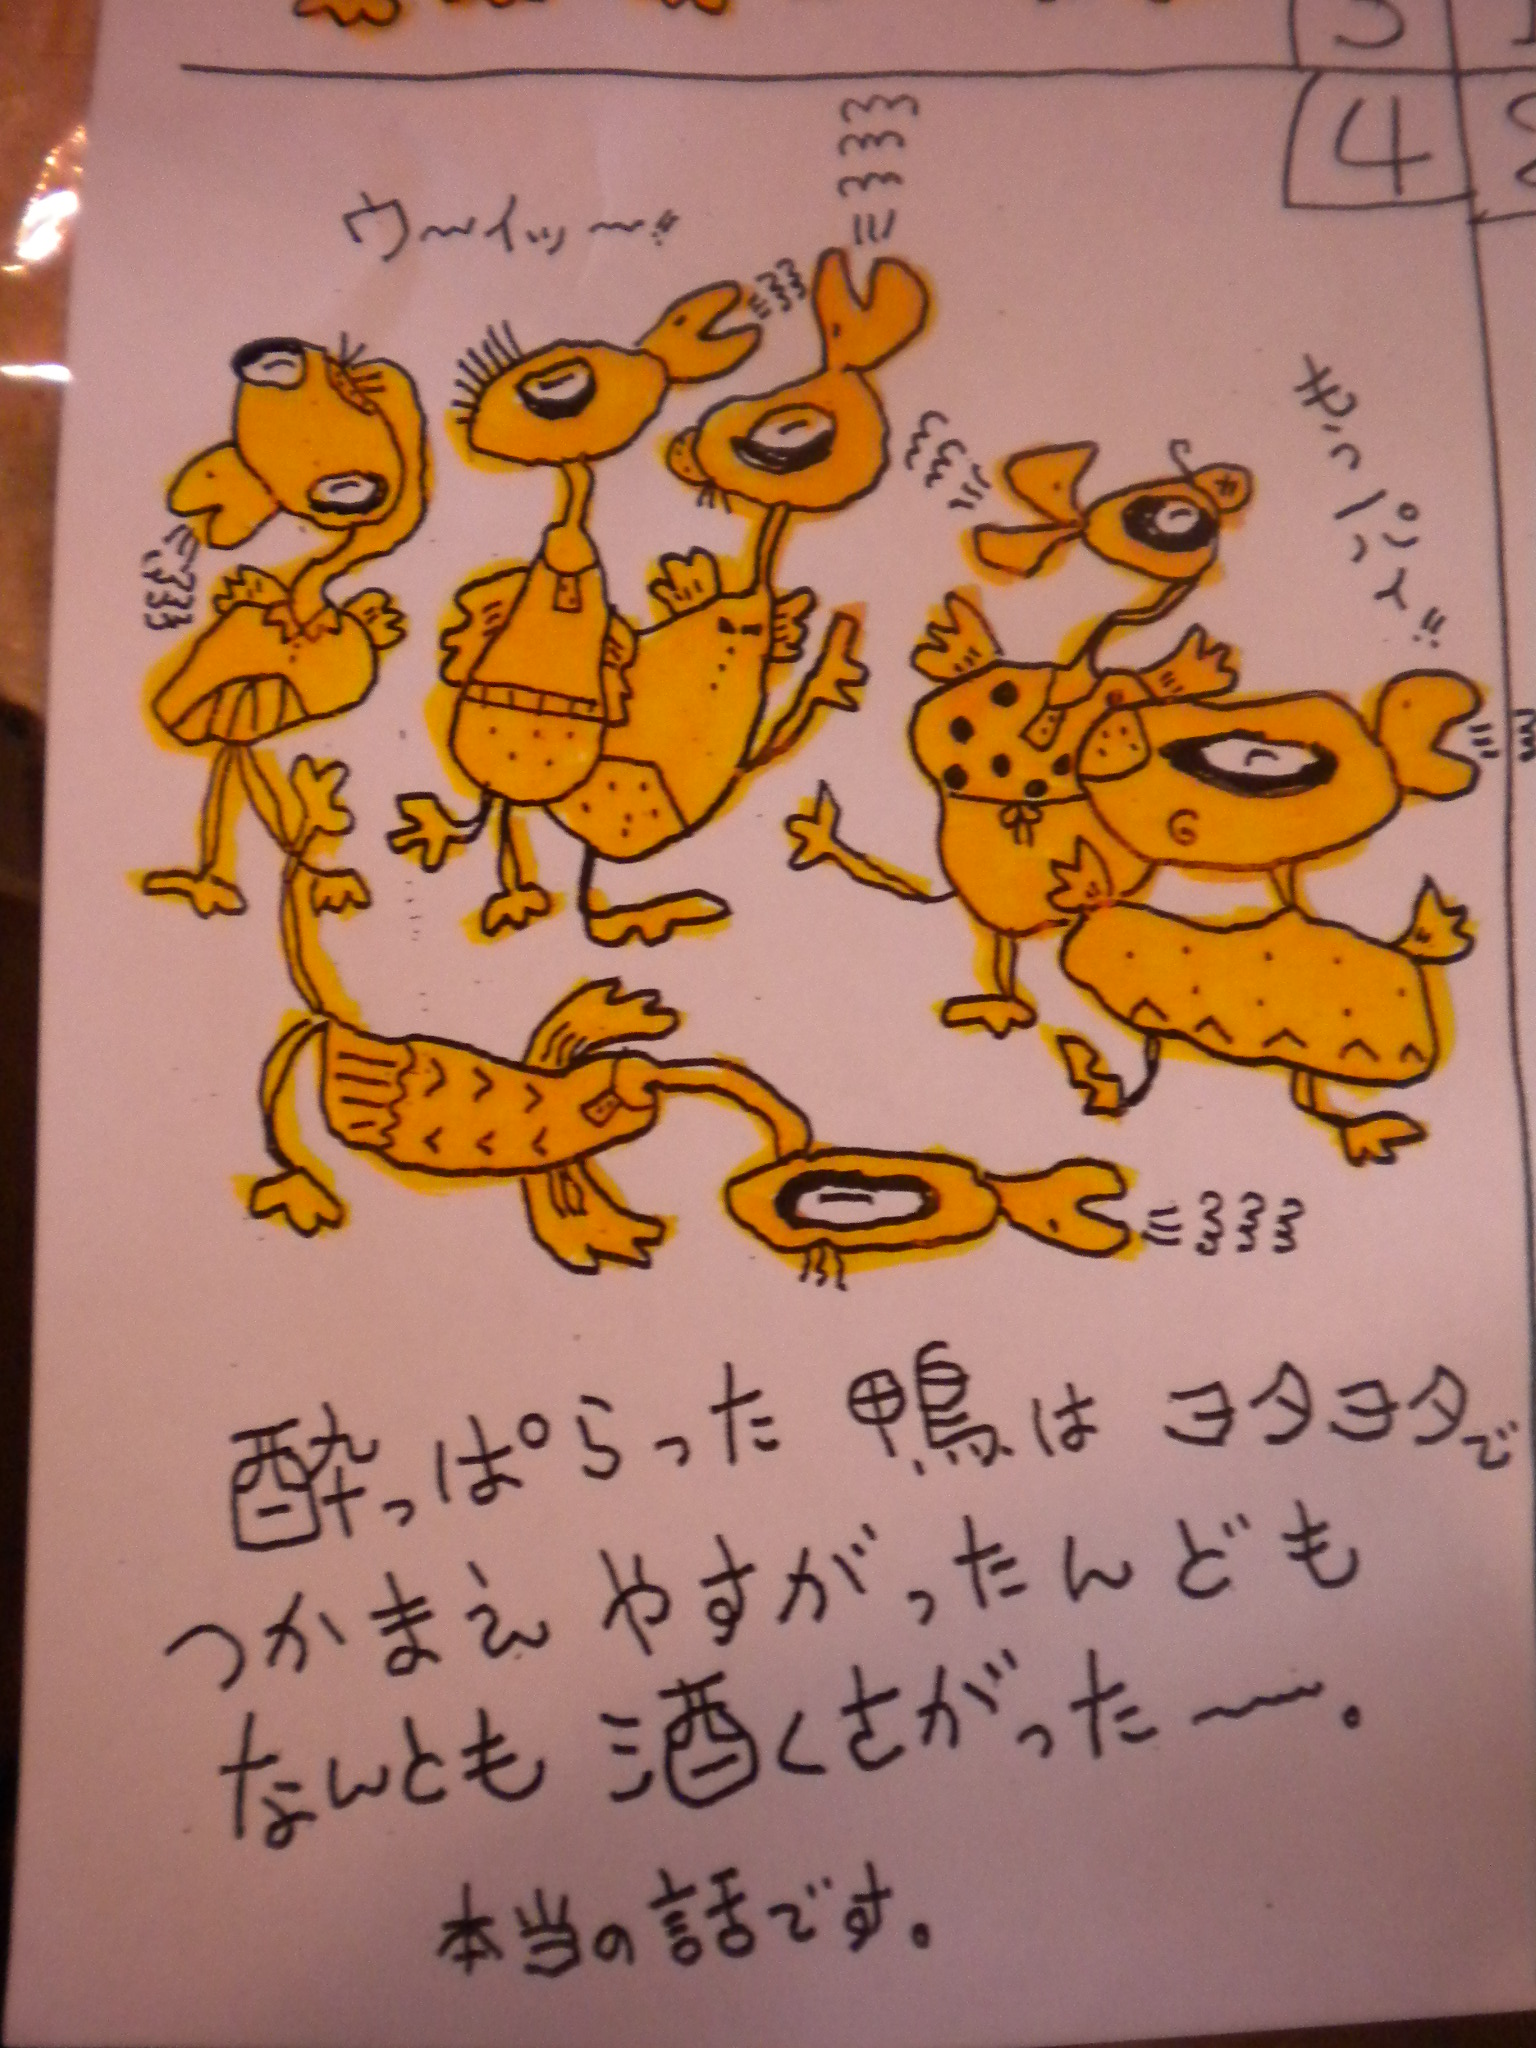 4
ウ〜イッ〜!!
もっパイ!!
酔っぱらった 鴨は ヨタヨタで
つかまえ やすがったんども
なんとも 酒くさがった〜。
本当の話です。